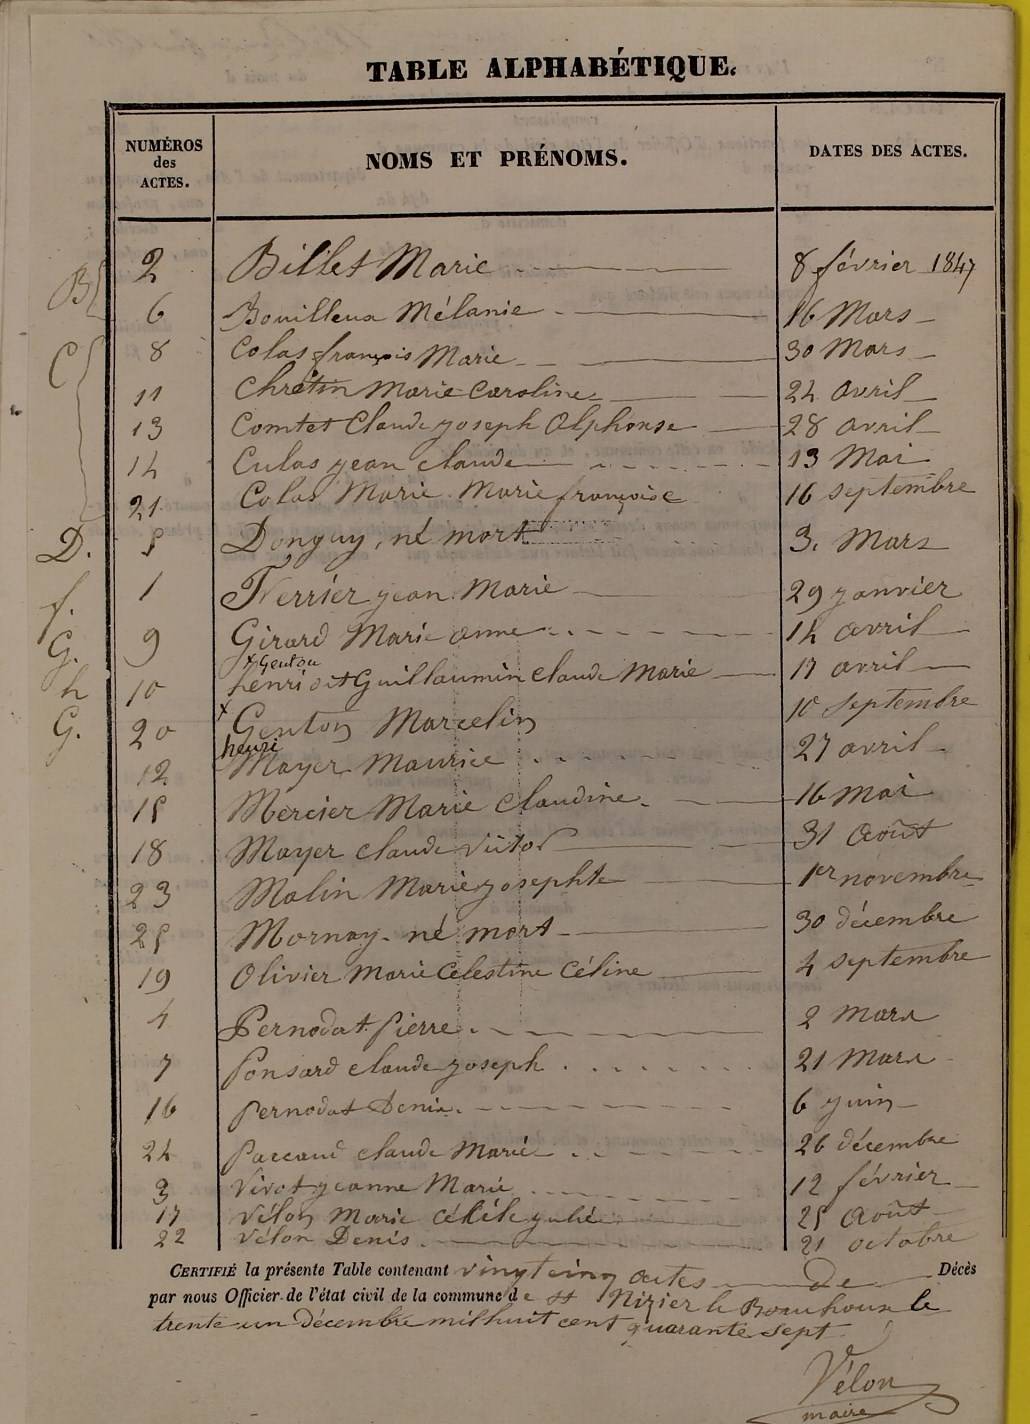 TABLE ALPHABÉTIQUE.
NUMÉROS des ACTES. NOMS ET PRÉNOMS. DATES DES ACTES.
B 2 Billet Marie 8 février 1847
6 Bouilleux Mélanie 16 Mars
C 8 Colas françois Marie 30 Mars
11 Chrétin Marie Caroline 24 avril
13 Comtet Claude joseph Alphonse 28 avril
14 Culas jean claude 13 Mai
21 Colas Marie Marie françoise 16 septembre
D. 5 Donguy, né mort 3. Mars
f. 1 Ferrier jean Marie 29 janvier
G. 9 Girard Marie anne 14 avril
x Genton
h 10 henri dit Guillaumin claude Marie 17 avril
G. 20 x Genton Marcelin 10 septembre
henri
12 Mayer Maurice 27 avril
15 Mercier Marie Claudine 16 mai
18 Mayer claude victor 31 Août
23 Malin Marie josephte 1er novembre
25 Mornay. né mort 30 décembre
19 Olivier Marie Celestine Céline 4 septembre
4 Pernodat Pierre 2 mars
7 Ponsard claude joseph 21 Mars
16 Pernodat Denis 6 juin
24 Paccaud claude Marie 26 décembre
3 Vivot jeanne Marie 12 février
17 Vélon Marie julie 25 Août
22 Vélon Denis 21 octobre
CERTIFIÉ la présente Table contenant vingt cinq actes de Décès
par nous Officier de l'état civil de la commune de st Nizier le Bouchoux le
trente-un Décembre mil huit cent quarante sept
Vélon
maire